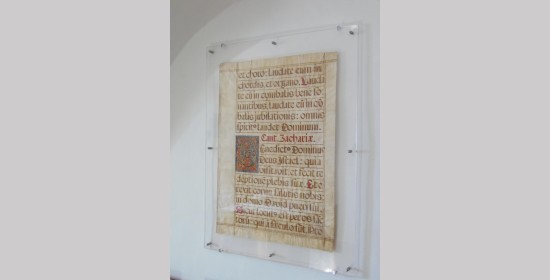 et choro: laudate eum in
chordis, et organo. Lauda
te eū in cymbalis bene so
nantibus: laudate eū in cȳ
balis jubilationis: omnis
spirit⁹ laudet Dominum.
Cant. Zachariæ.
Benedict⁹ Dominus
Deus Israel: quia
visitavit et fecit re
dēptionē plebis suæ. Et e
rexit cornu salutis nobis:
in domo David pueri sui.
Sicut locut⁹ est per os sā